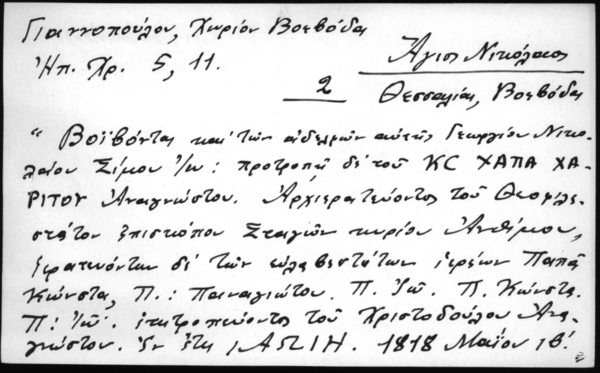 Γιαννοπούλου, Χωρίον Βοεβόδα
Ἠπ. Χρ. 5, 11.
Ἅγιος Νικόλαος
2
Θεσσαλίας, Βοεβόδας
" Βοϊβόντας καὶ τῶν ἀδελφῶν αὐτῆς Γεωργίου Νικο-
λαίου Σίμου Ἰω : προτροπῇ δὲ τοῦ ΚC ΧΑΠΑ ΧΑ-
ΡΙΤΟΥ Ἀναγνώστου. Ἀρχιερατεύοντος τοῦ Θεοφιλε-
στάτου ἐπισκόπου Σταγῶν κυρίου Ἀνθίμου,
ἱερατευόντων δὲ τῶν εὐλαβεστάτων ἱερέων Παπᾶ
Κώνστα, Π. : Παναγιώτου. Π. Ἰῶ. Π. Κώνστα.
Π : Ἰῶ. ἐπιτροπεύοντος τοῦ Χριστοδούλου Ἀνα-
γνώστου. Ἐν ἔτη 1818 Μαΐου